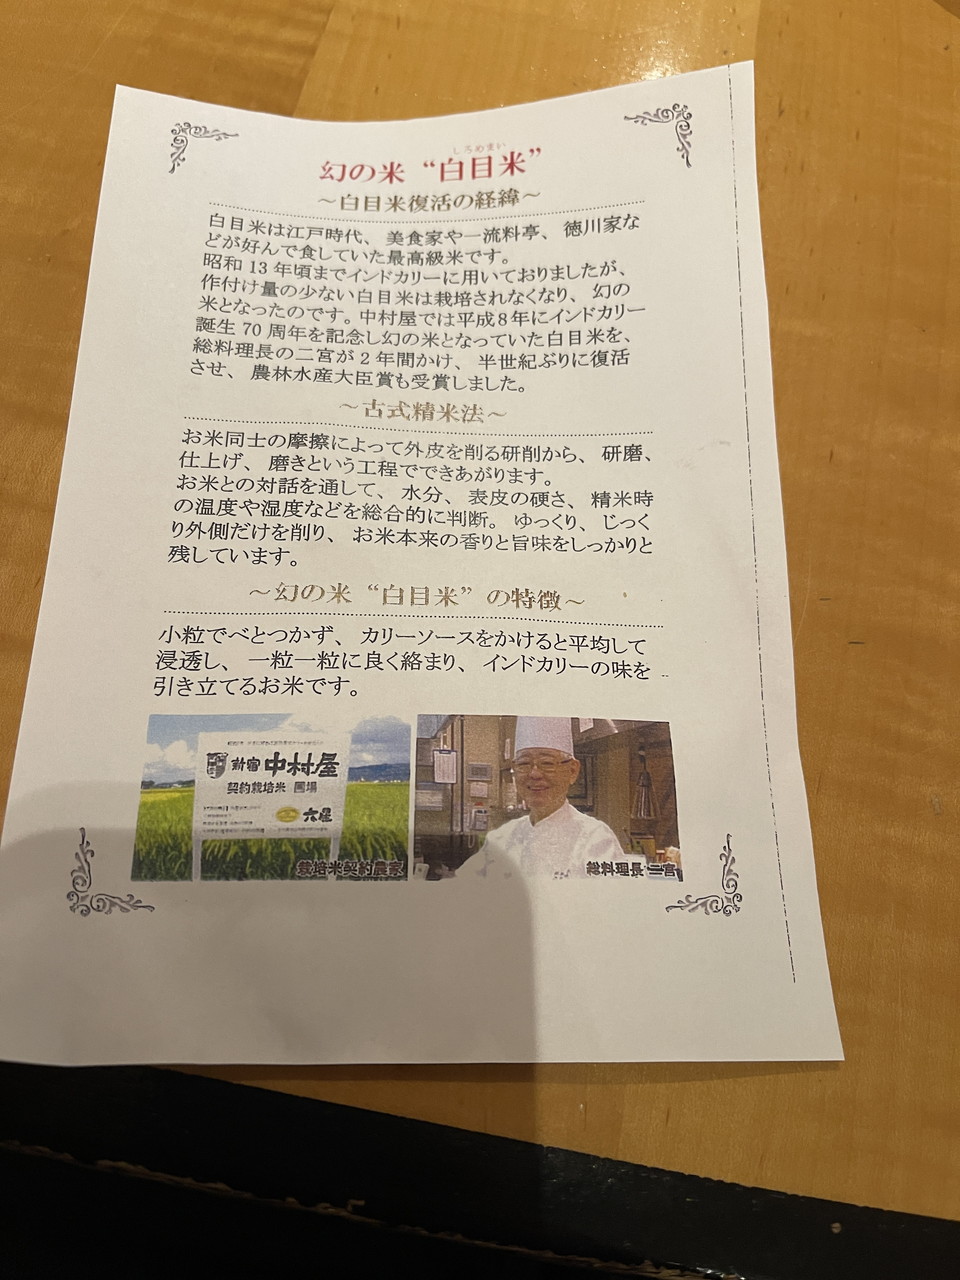 しろめまい
幻の米 “白目米”
～白目米復活の経緯～
白目米は江戸時代、美食家や一流料亭、徳川家な
どが好んで食していた最高級米です。
昭和 13 年頃までインドカリーに用いておりましたが、
作付け量の少ない白目米は栽培されなくなり、幻の
米となったのです。中村屋では平成8年にインドカリー
誕生 70 周年を記念し幻の米となっていた白目米を、
総料理長の二宮が 2 年間かけ、半世紀ぶりに復活
させ、農林水産大臣賞も受賞しました。
～古式精米法～
お米同士の摩擦によって外皮を削る研削から、研磨、
仕上げ、磨きという工程でできあがります。
お米との対話を通して、水分、表皮の硬さ、精米時
の温度や湿度などを総合的に判断。ゆっくり、じっく
り外側だけを削り、お米本来の香りと旨味をしっかりと
残しています。
～幻の米 “白目米” の特徴～
小粒でべとつかず、カリーソースをかけると平均して
浸透し、一粒一粒に良く絡まり、インドカリーの味を
引き立てるお米です。
新宿 中村屋
契約栽培米 圃場
六星
栽培米契約農家
総料理長 二宮